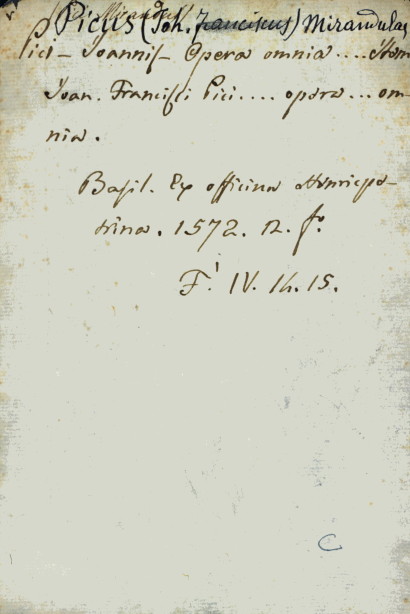 Picus (Joh. Franciscus) Mirandulas
Pici Joannis Opera omnia .... Item
Joan. Francisci Pici .... opera ... om-
nia.
Basil. Ex officina Henricpe-
trina. 1572. 12. fo.
F. IV. 14. 15.
C